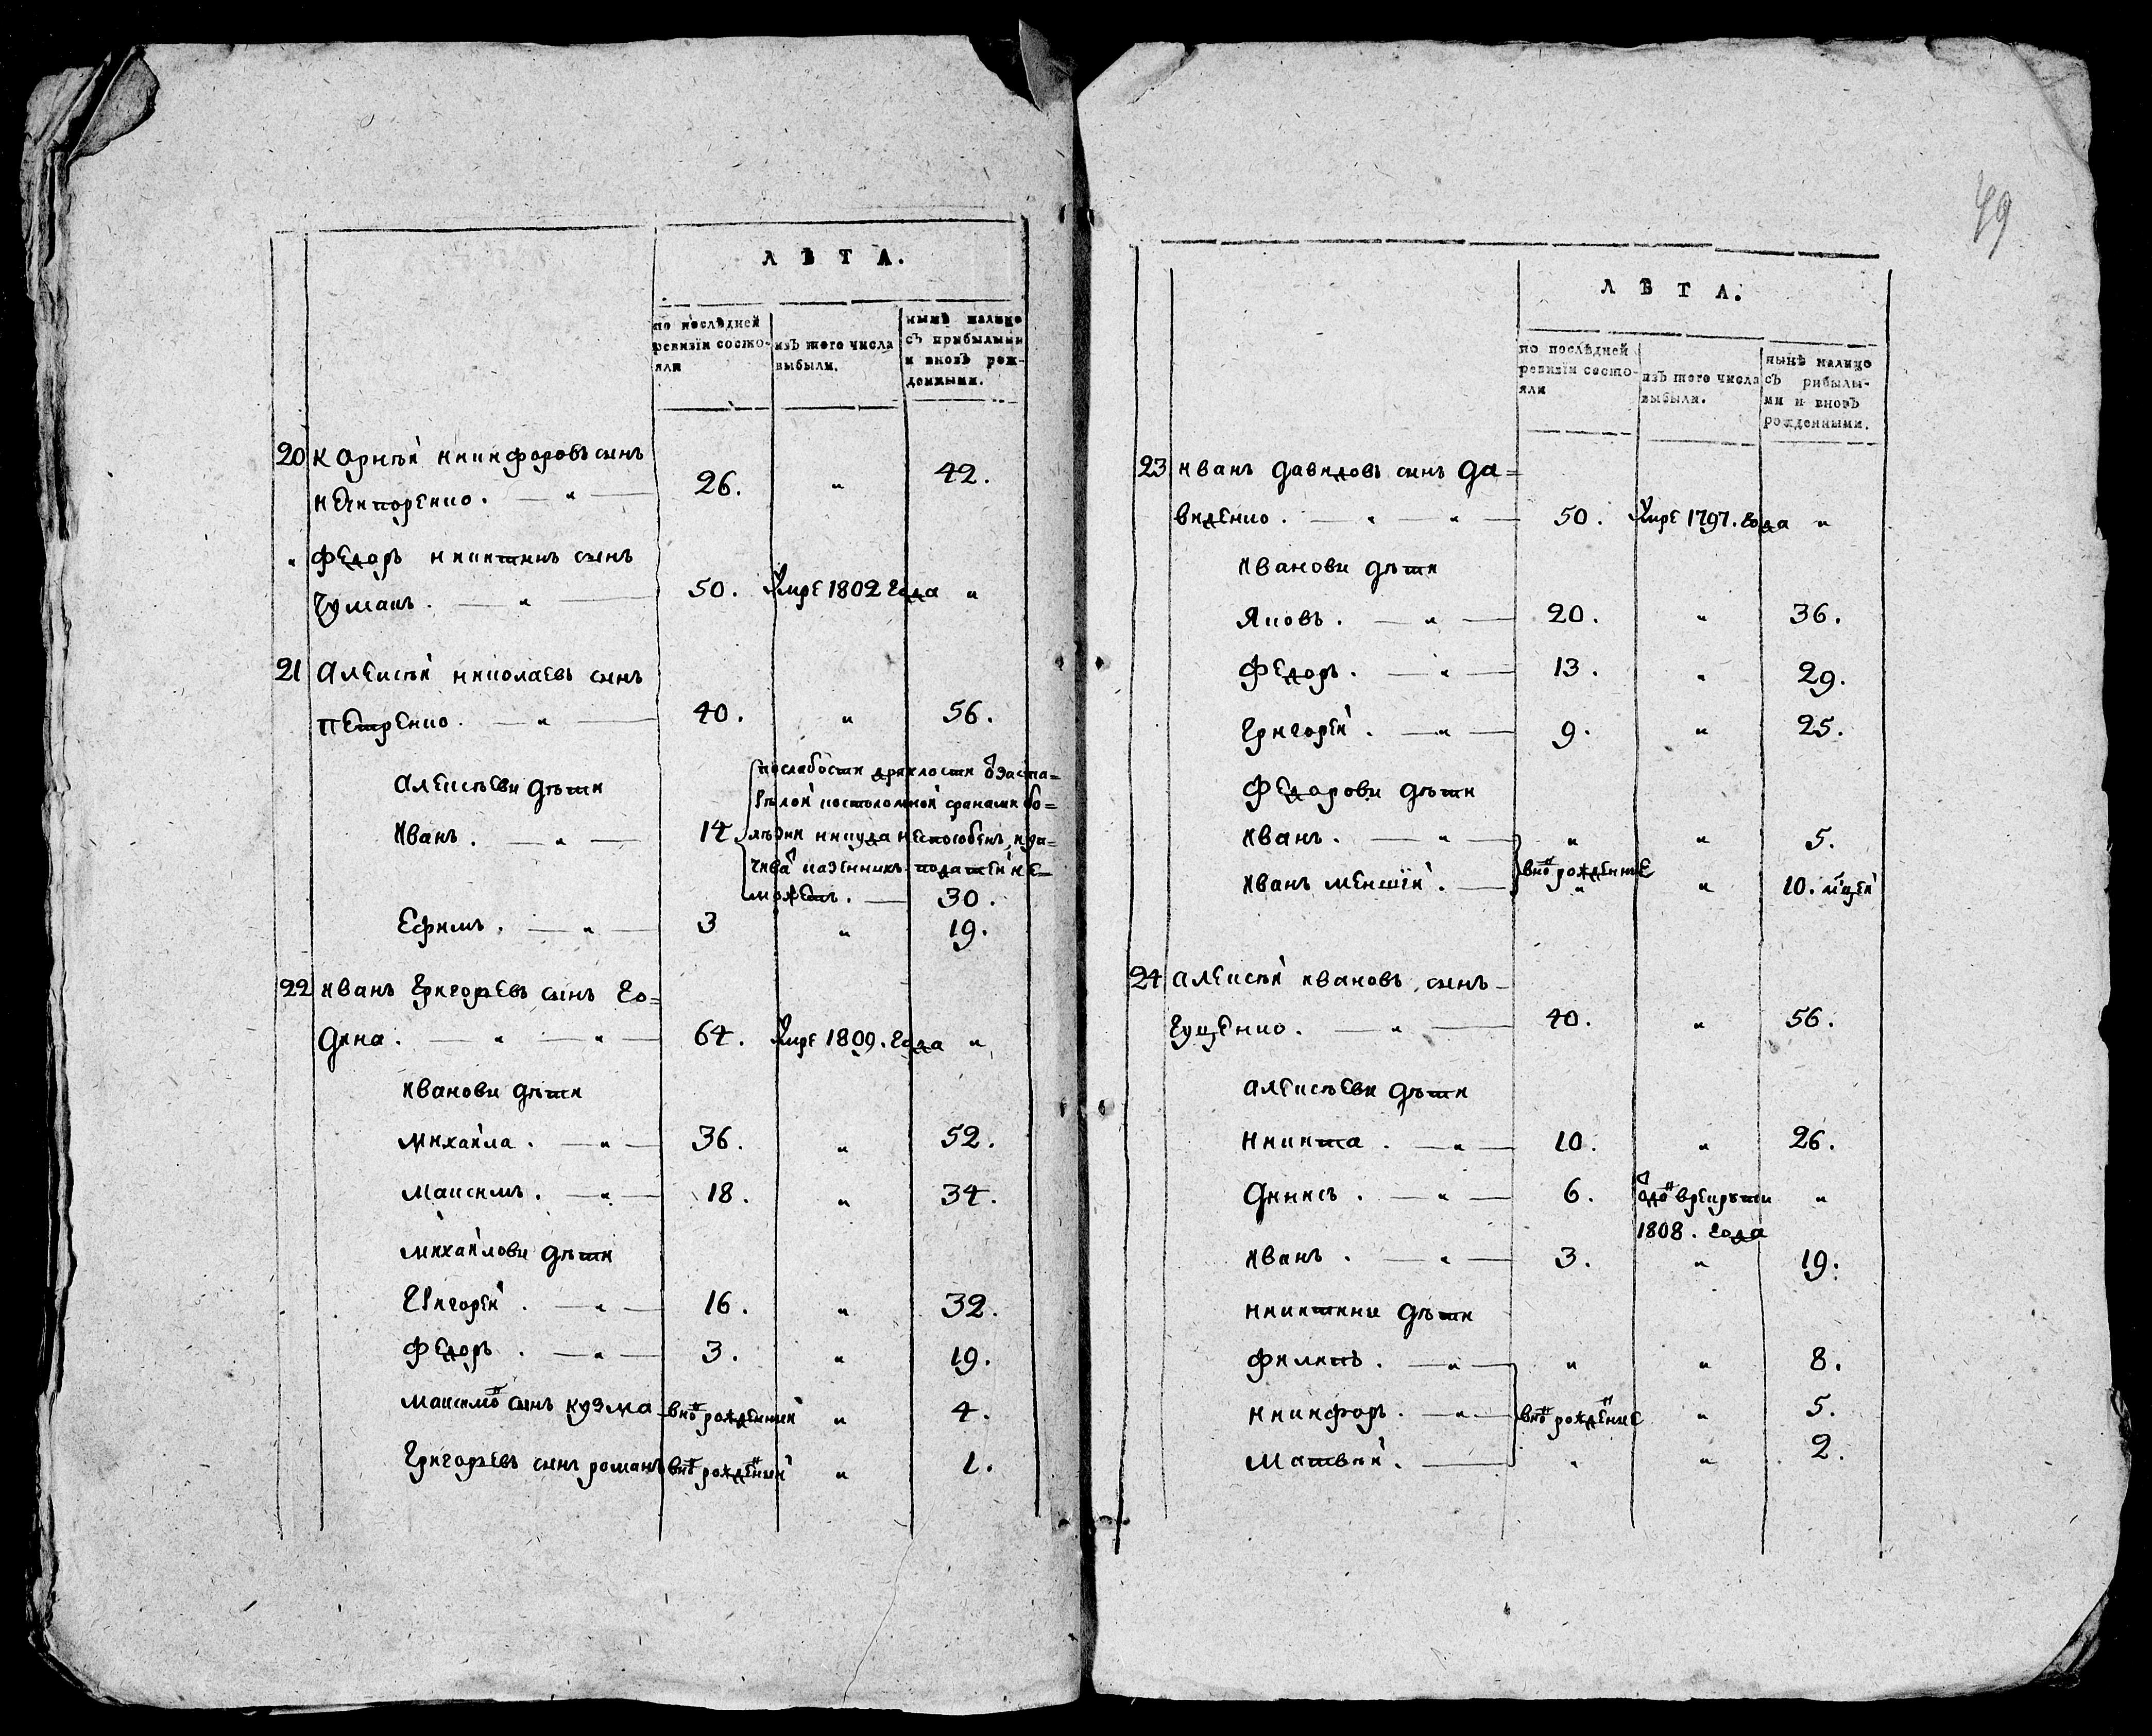 ЛѢТА.
по послѣдней ревизіи состо-
яли
изъ того числа
выбыли.
нынѣ налицо
съ прибылыми
и вновь рож-
денными.
20 Карнѣй никифоровъ сынъ
нечипоренко. — " — 26. " 42.
" Федоръ никитинъ сынъ
Чумакъ. — " — 50. Умре 1802 года "
21 Алексѣй николаевъ сынъ
петренко. — " — 40. " 56.
Алексѣеви дѣти
послабости дряхлости и заста-
рѣлой
Иванъ. — " — 14
никуда неспособенъ
податей не-
можетъ. — 30.
Ефимъ. — " — 3 " 19.
22 иванъ Григорьевъ сынъ Го-
дина. — " — " — 64. Умре 1809. года "
ивановы дѣти
михайла. — " — 36. " 52.
максимъ. — " — 18. " 34.
михайловы дѣти
Григорей. — " — 16. " 32.
Федоръ. — " — 3. " 19.
максимо сынъ кузма вно рожденный " 4.
Григорьевъ сынъ романъ вно рожденый " 1.
49
ЛѢТА.
по послѣдней
ревизіи состо-
яли
изъ того числа
выбыли.
нынѣ налицо
съ рибылы-
ми и вновь
рожденными.
23 иванъ давидовъ синъ да=
виденко. — " — " — 50. Умре 1797. года "
ивановы дѣти
Яковъ. — " — 20. " 36.
Федоръ. — " — 13. " 29.
Григорей. — " — 9. " 25.
Федоровы дѣти
иванъ. — " — " " 5.
вно рожденые
иванъ меншій. — " " 10. мцей
24 алексѣй ивановъ сынъ-
Гущенко. — " — 40. " 56.
алексѣеви дѣти
никита. — " — 10. " 26.
Динисъ. — " — 6. одо врекруты "
1808. года
иванъ. — " — 3. " 19.
никитины дѣти
филипъ. — " — " " 8.
никифоръ. — " — вно рождение " 5.
матвѣй. — " " 2.